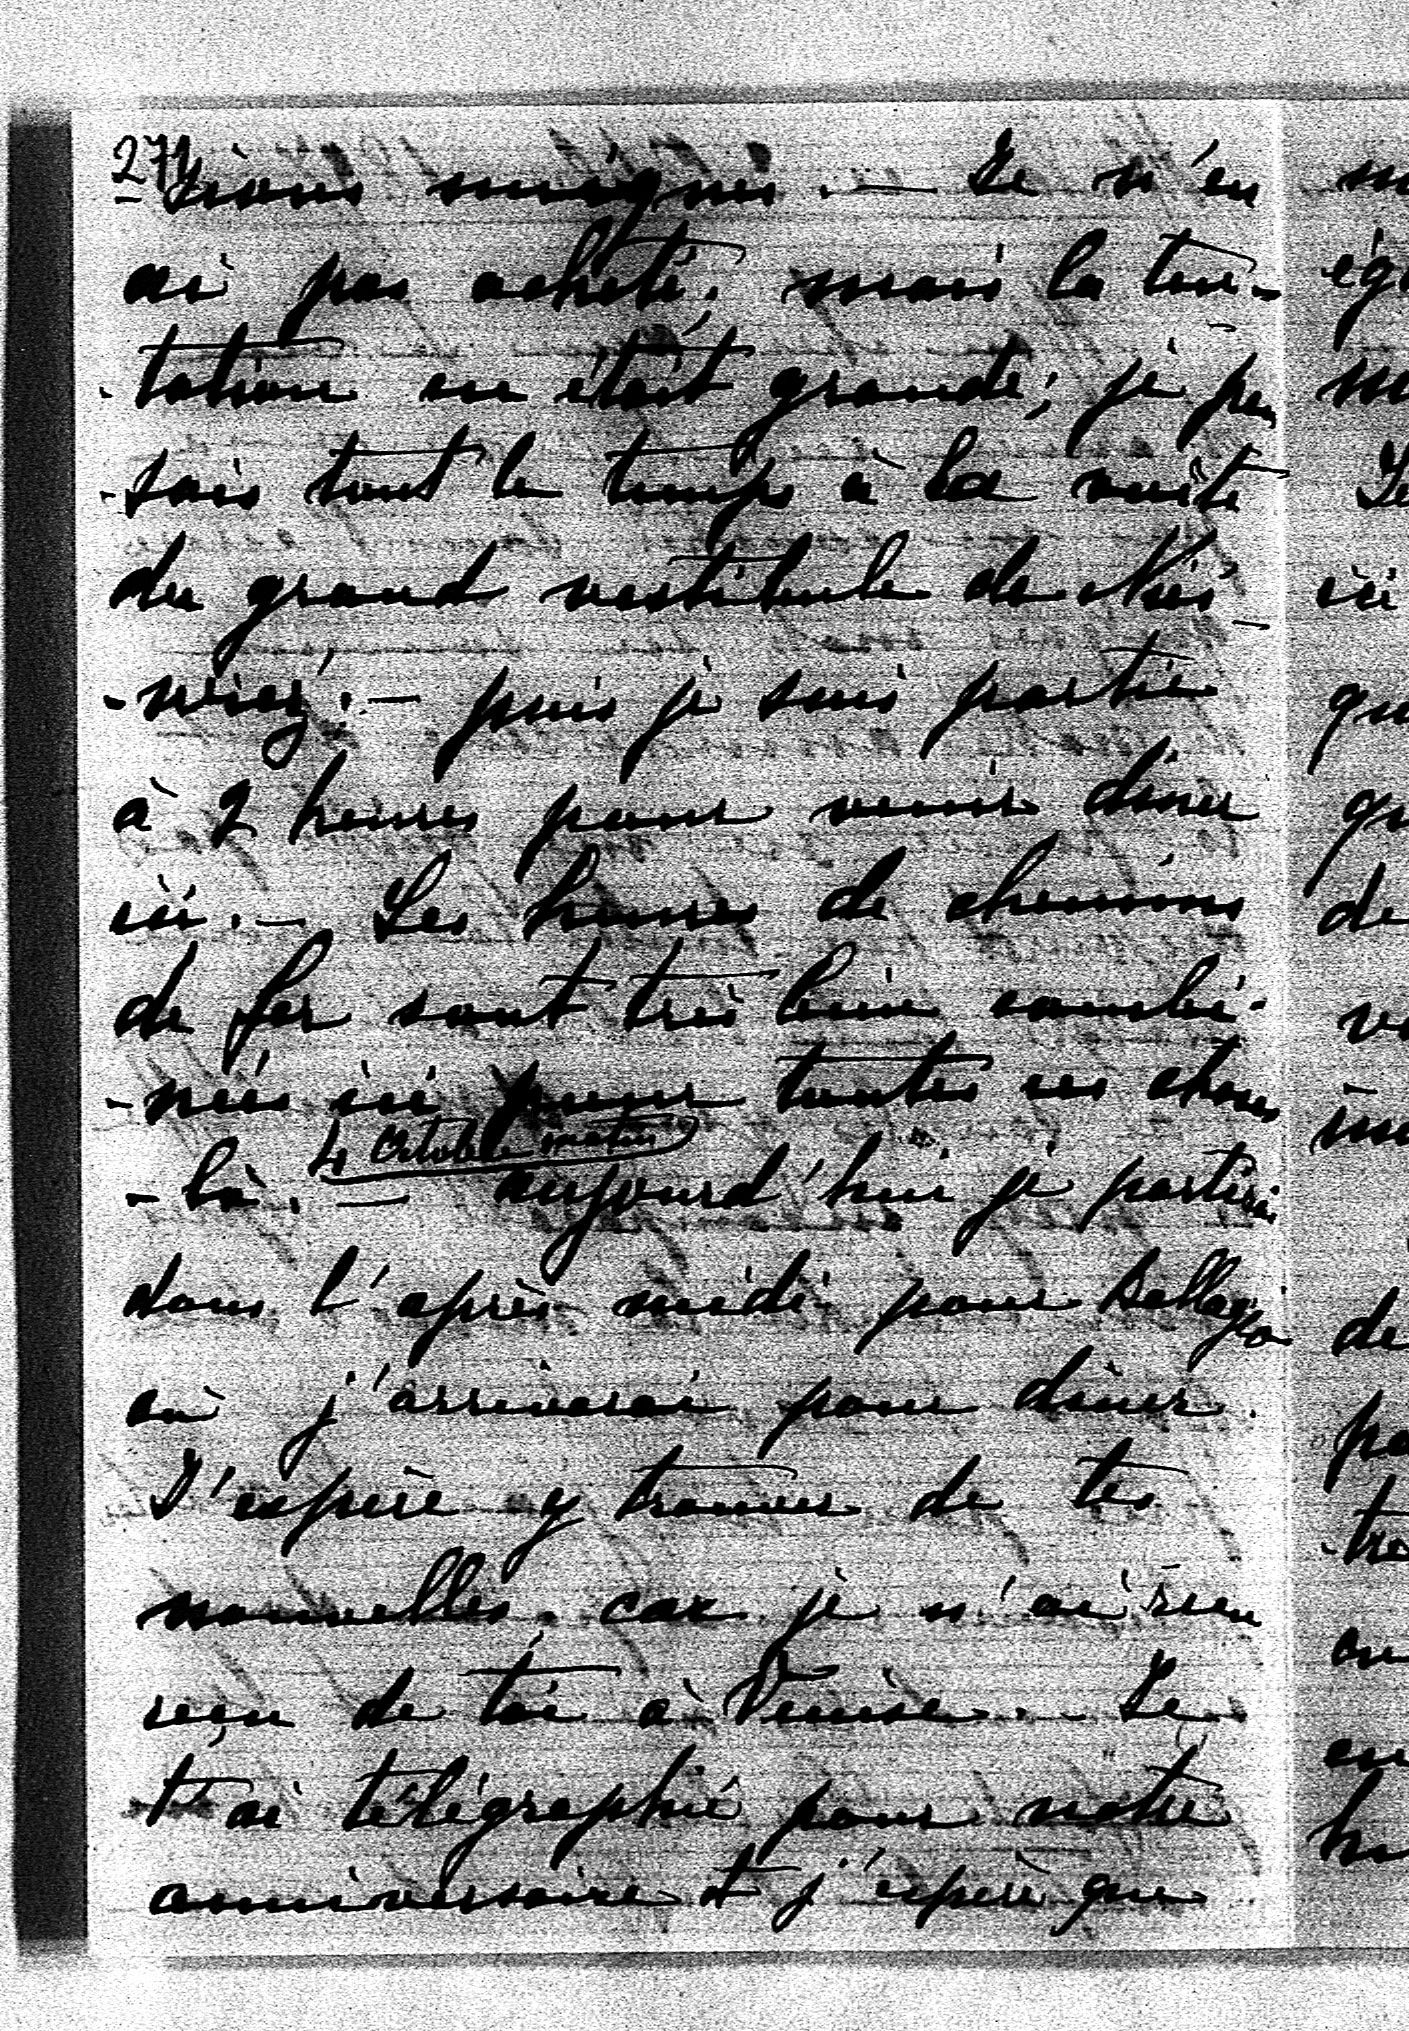 271
-tions insignes. — Je n'en
ai pas acheté. mais la ten-
-tation en était grande; je pen
-sais tout le temps à la voûte
du grand vestibule de
puis je suis partie
à 2 heures pour venir diner
ici. — Les heures de chemins
de fer sont très bien combi-
-nées ici pour toutes ces choses
4 Octobre matin
-là. — aujourd'hui je partirai
dans l'après midi pour Bellagio
où j'arriverai pour diner.
J'espère y trouver de tes
nouvelles. car je n'ai rien
reçu de toi à Venise. — Je
t'ai télégraphié pour notre
anniversaire et j'espère que